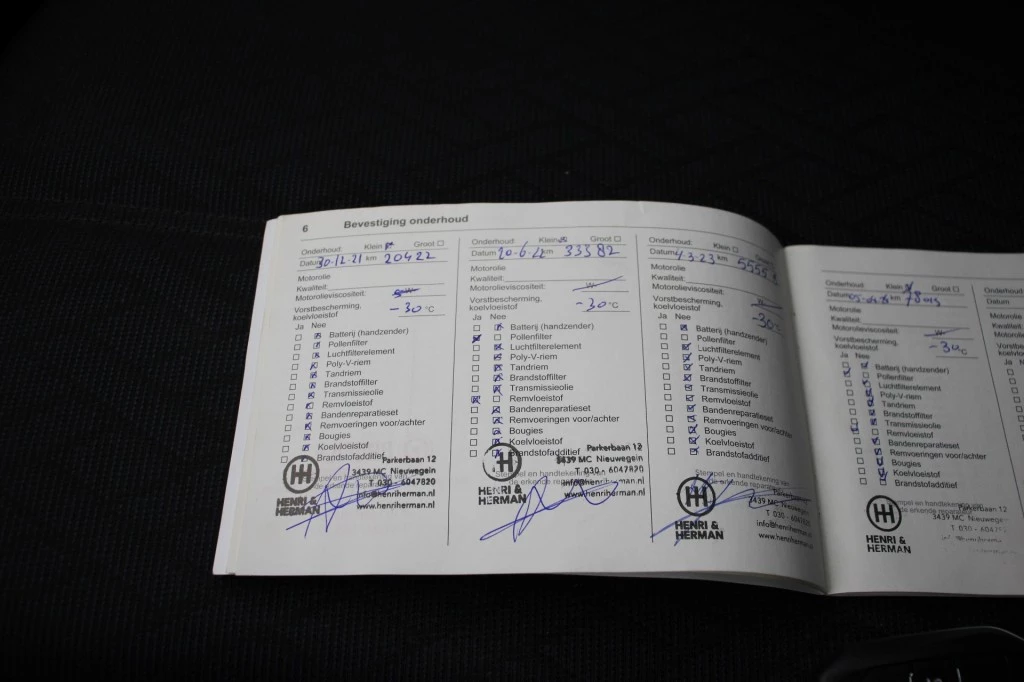 6 Bevestiging onderhoud
Onderhoud: Klein Groot
Datum 30-12-21 km 20422
Motorolie
Kwaliteit:
Motorolieviscositeit:
Vorstbescherming,
koelvloeistof -30 °C
Ja Nee
Batterij (handzender)
Pollenfilter
Luchtfilterelement
Poly-V-riem
Tandriem
Brandstoffilter
Transmissieolie
Remvloeistof
Bandenreparatieset
Remvoeringen voor/achter
Bougies
Koelvloeistof
Brandstofadditief
HH
HENRI &
HERMAN
Parkerbaan 12
3439 MC Nieuwegein
T. 030 - 6047820
info@henriherman.nl
www.henriherman.nl
Onderhoud: Klein Groot
Datum 20-6-22 km 33382
Motorolie
Kwaliteit:
Motorolieviscositeit: W
Vorstbescherming,
koelvloeistof -30 °C
Ja Nee
Batterij (handzender)
Pollenfilter
Luchtfilterelement
Poly-V-riem
Tandriem
Brandstoffilter
Transmissieolie
Remvloeistof
Bandenreparatieset
Remvoeringen voor/achter
Bougies
Koelvloeistof
Brandstofadditief
Stempel en handtekening van
de erkende reparateur
HH
HENRI &
HERMAN
Parkerbaan 12
3439 MC Nieuwegein
T. 030 - 6047820
info@henriherman.nl
www.henriherman.nl
Onderhoud: Klein Groot
Datum km
Motorolie
Kwaliteit:
Motorolieviscositeit: W
Vorstbescherming,
koelvloeistof -30
Ja Nee
Batterij (handzender)
Pollenfilter
Luchtfilterelement
Poly-V-riem
Tandriem
Brandstoffilter
Transmissieolie
Remvloeistof
Bandenreparatieset
Remvoeringen voor/achter
Bougies
Koelvloeistof
Brandstofadditief
Stempel en handtekening van
de erkende
HH
HENRI &
HERMAN
Nieuwegein
T 030 - 6047820
info@henriherman.nl
www.henriherman.nl
Onderhoud: Klein Groot
Datum km
Motorolie
Kwaliteit:
Motorolieviscositeit: W
Vorstbescherming,
koelvloeistof °C
Ja Nee
Batterij (handzender)
Pollenfilter
Luchtfilterelement
Poly-V-riem
Tandriem
Brandstoffilter
Transmissieolie
Remvloeistof
Bandenreparatieset
Remvoeringen voor/achter
Bougies
Koelvloeistof
Brandstofadditief
Stempel en handtekening van
de erkende
HH
HENRI &
HERMAN
Parkerbaan 12
3439 MC Nieuwegein
T 030 -
Onderhoud:
Datum
Motorolie
Kwaliteit:
Ja Nee